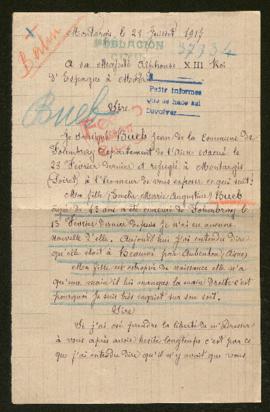 Montargis, le 21 Juillet 1917
POBLACION
CIVIL
37734
A sa Majesté Alphonse XIII Roi
d'Espagne à Madrid
Pedir informes
que se hace sin
devolver
Buch
Sire
Je soussigné Buch Jean de la Commune de
Folembray Département de l'Aisne évacué le
23 Février dernier et réfugié à Montargis
(Loiret) à l'honneur de vous exposer ce qui suit:
Ma fille Marie Augustine Buch
agée de 13 ans a été emmenée de Folembray le
13 Février dernier depuis je n'ai eu aucune
nouvelle d'elle. Aujourd'hui j'ai entendu dire
qu'elle était à Beaumé par Aubenton (Aisne)
Ma fille est estropiée de naissance elle n'a
qu'une main il lui manque la main droite c'est
pourquoi Je suis très inquiet sur son sort.
Sire
Si j'ai osé prendre la liberté de m'adresser
à vous après avoir hésité longtemps c'est par ce
que j'ai entendu dire qu'il n'y avait que vous